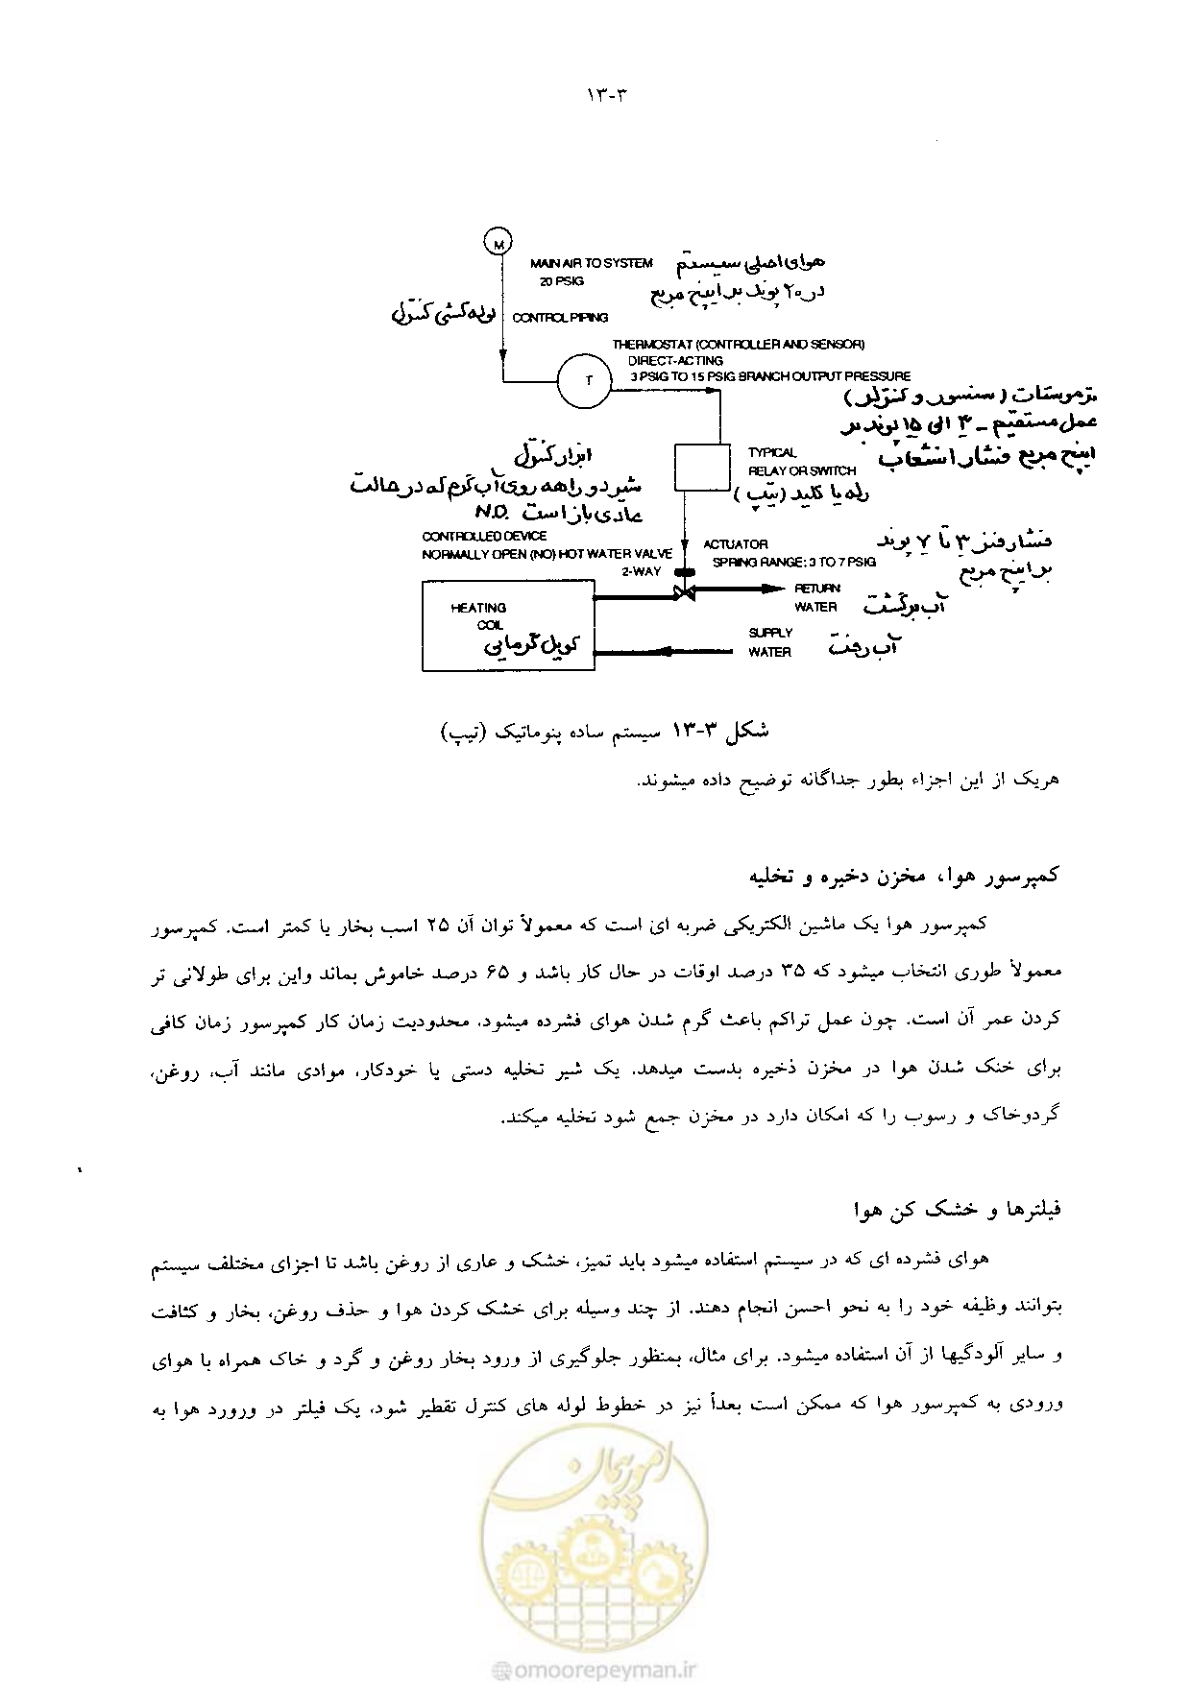 ۱۳-۳
M
MAIN AIR TO SYSTEM
20 PSIG
هوای اصلی سیستم
در ۲۰ پوند بر اینچ مربع
لوله کشی کنترل
CONTROL PIPING
THERMOSTAT (CONTROLLER AND SENSOR)
DIRECT-ACTING
3 PSIG TO 15 PSIG BRANCH OUTPUT PRESSURE
T
ترموستات (سنسور و کنترلر)
عمل مستقیم - ۳ الی ۱۵ پوند بر
اینچ مربع فشار انشعاب
TYPICAL
RELAY OR SWITCH
رله یا کلید (تیپ)
ابزار کنترل
شیر دو راهه روی آب گرم که در حالت
عادی باز است N.O.
CONTROLLED DEVICE
NORMALLY OPEN (NO) HOT WATER VALVE
2-WAY
ACTUATOR
SPRING RANGE: 3 TO 7 PSIG
فشار فنر ۳ تا ۷ پوند
بر اینچ مربع
RETURN
WATER
آب برگشت
HEATING
COIL
کویل گرمایی
SUPPLY
WATER
آب رفت
شکل ۳-۱۳ سیستم ساده پنوماتیک (تیپ)
هریک از این اجزاء بطور جداگانه توضیح داده میشوند.
کمپرسور هوا، مخزن دخیره و تخلیه
کمپرسور هوا یک ماشین الکتریکی ضربه ای است که معمولاً توان آن ۲۵ اسب بخار یا کمتر است. کمپرسور
معمولاً طوری انتخاب میشود که ۳۵ درصد اوقات در حال کار باشد و ۶۵ درصد خاموش بماند واین برای طولانی تر
کردن عمر آن است. چون عمل تراکم باعث گرم شدن هوای فشرده میشود، محدودیت زمان کار کمپرسور زمان کافی
برای خنک شدن هوا در مخزن ذخیره بدست میدهد. یک شیر تخلیه دستی یا خودکار، موادی مانند آب، روغن،
گردوخاک و رسوب را که امکان دارد در مخزن جمع شود تخلیه میکند.
فیلترها و خشک کن هوا
هوای فشرده ای که در سیستم استفاده میشود باید تمیز، خشک و عاری از روغن باشد تا اجزای مختلف سیستم
بتوانند وظیفه خود را به نحو احسن انجام دهند. از چند وسیله برای خشک کردن هوا و حذف روغن، بخار و کثافت
و سایر آلودگیها از آن استفاده میشود. برای مثال، بمنظور جلوگیری از ورود بخار روغن و گرد و خاک همراه با هوای
ورودی به کمپرسور هوا که ممکن است بعداً نیز در خطوط لوله های کنترل تقطیر شود، یک فیلتر در ورورد هوا به
امور پیمان
@omoorepeyman.ir